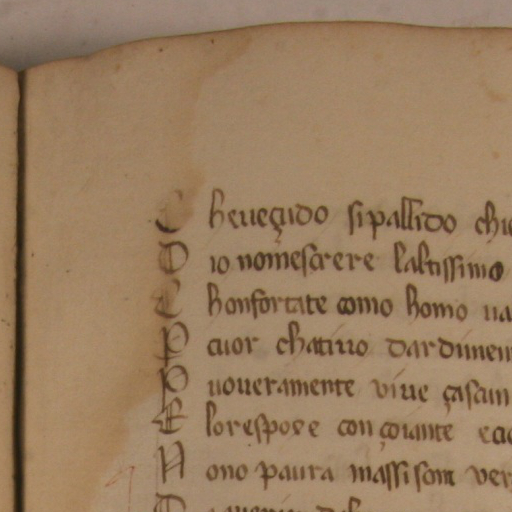 C heveçudo si pallido chi
D io nomescrere laltissimo
C honfortate como homo va
P cuor chativo dardimen
P uoveramente vive çascun
E lo respoxe con çoiante
N ono paura massi som ver